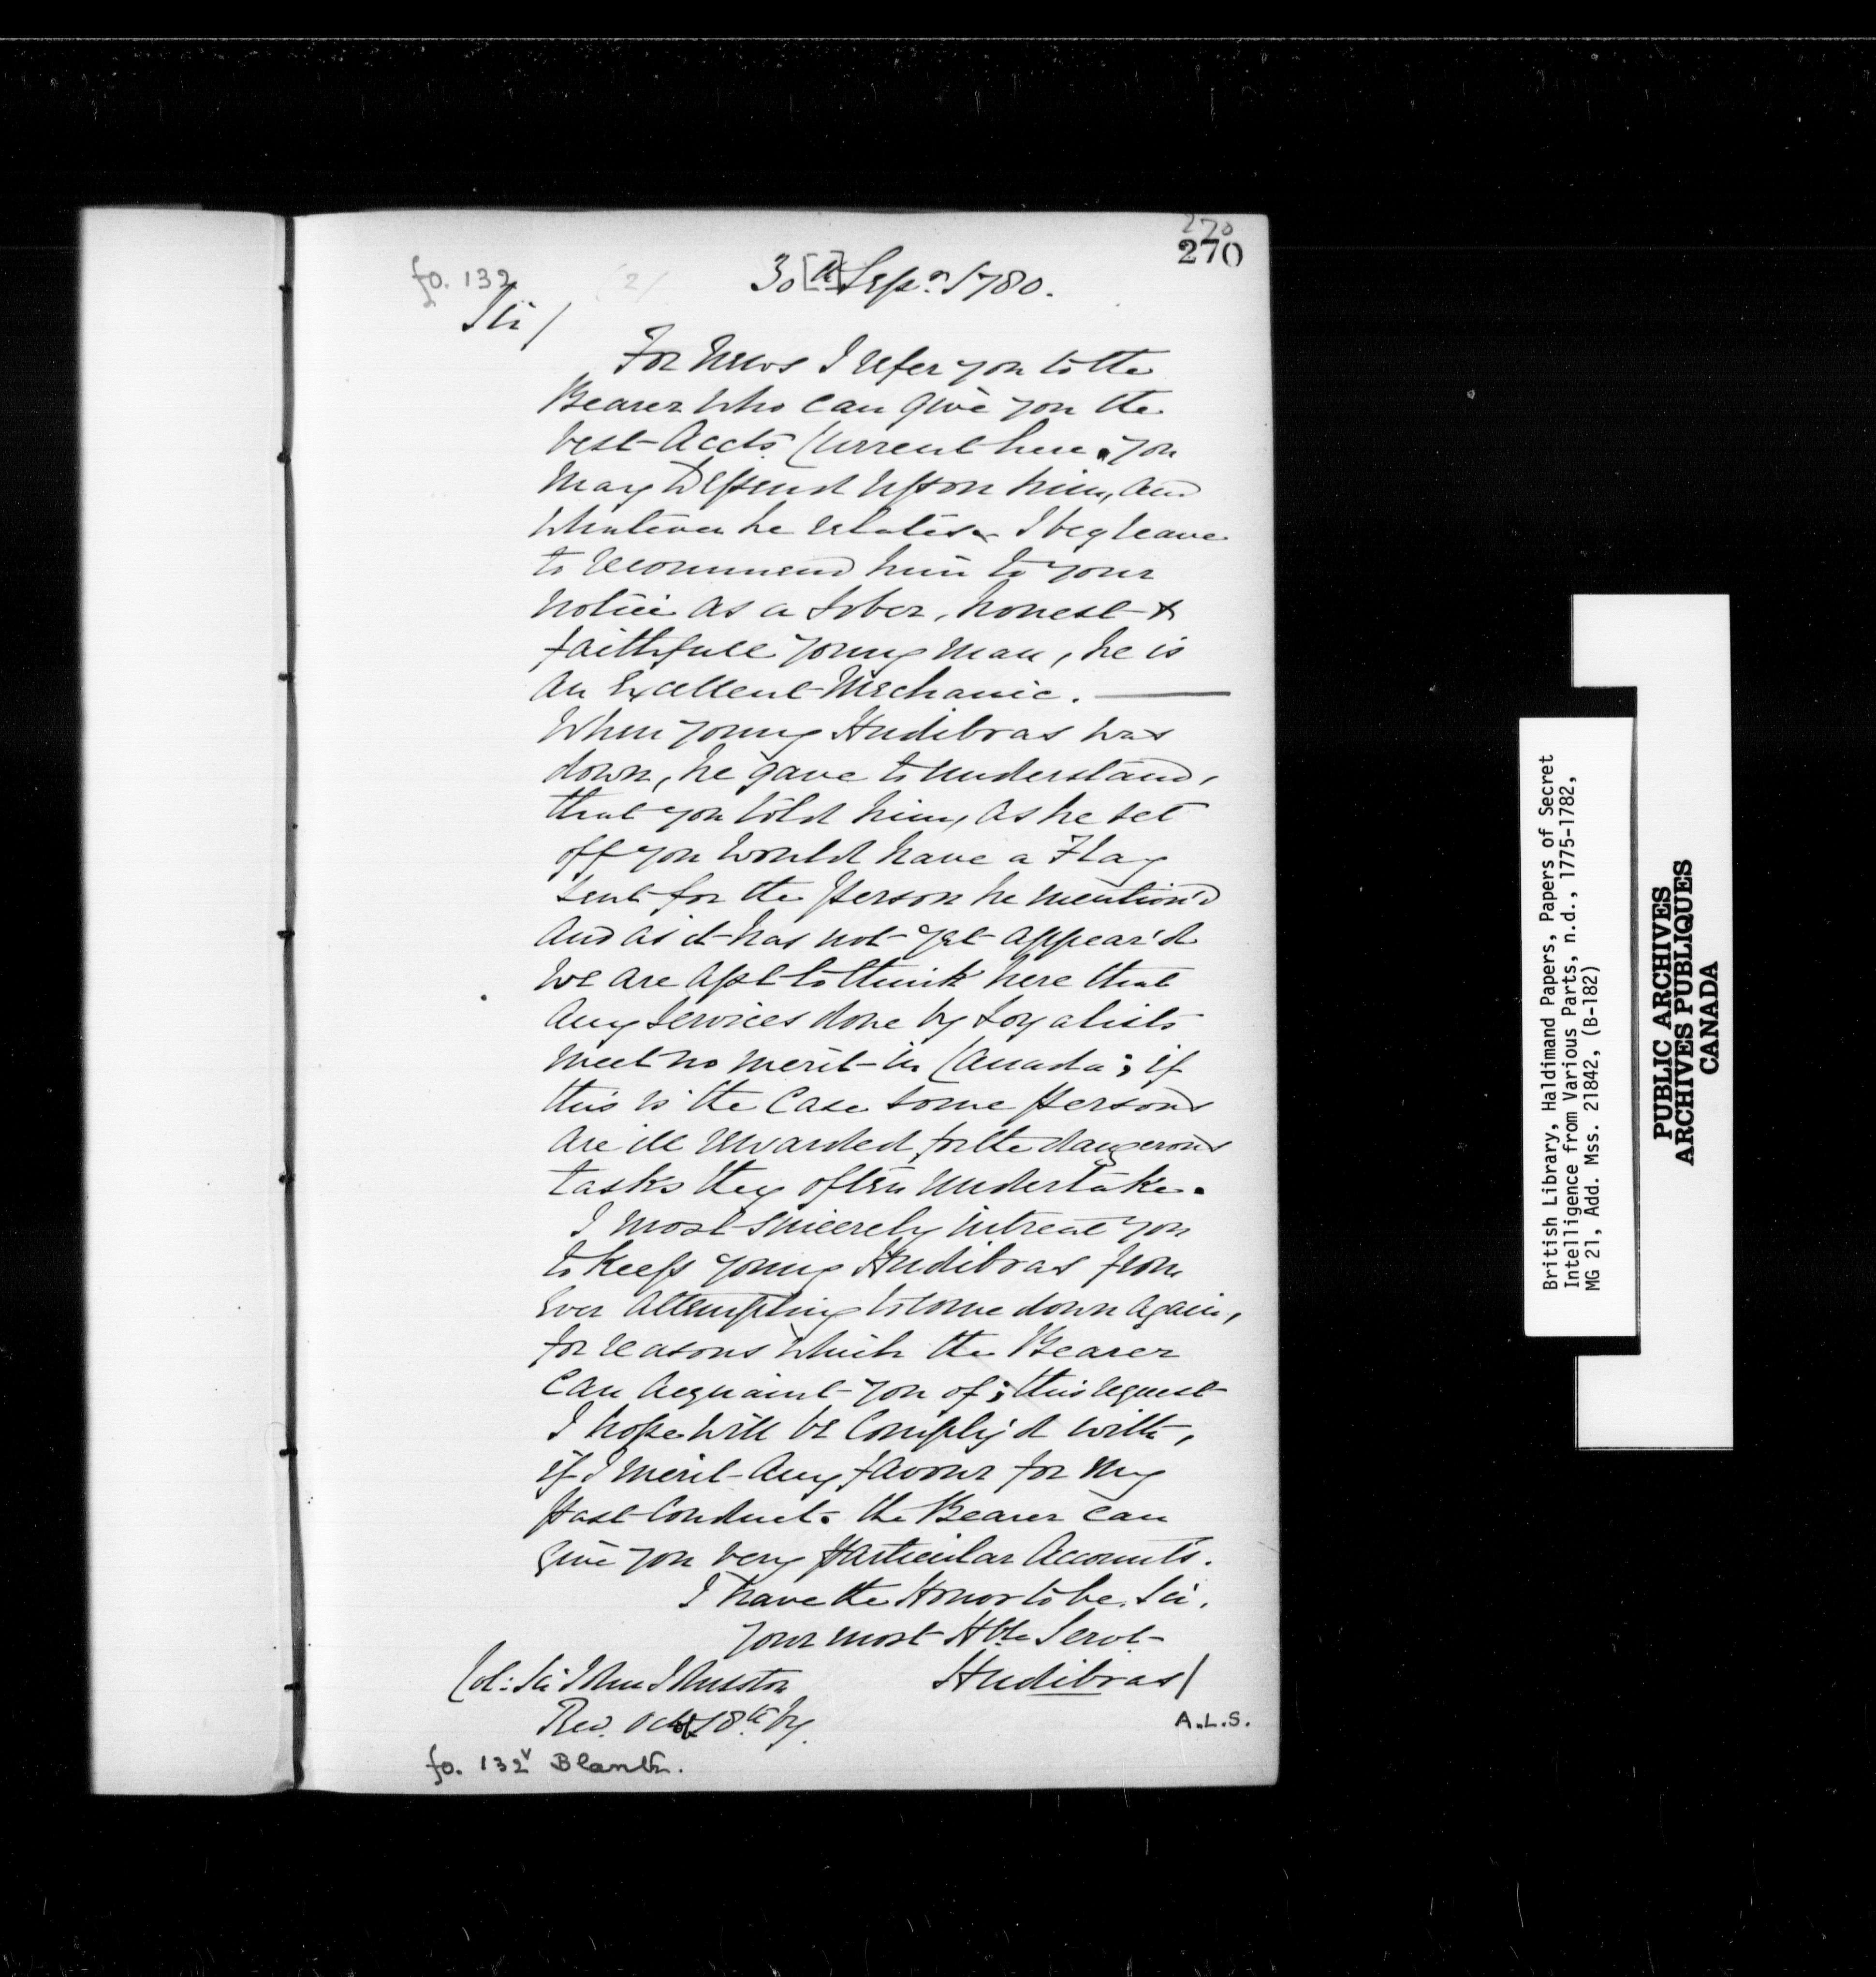 270
270
fo. 132
(2)
30[th] Sepr. 1780.
Sir/
For News I refer you to the
Bearer who can give you the
best Accts. Current here. you
may Depend upon him, and
whatever he relates. I beg leave
to recommend him to your
notice as a sober, honest &
faithfull young man, he is
an Excellent Mechanic. —
When young Hudibras was
down, he gave to understand,
that you told him, as he set
off you would have a Flag
sent for the person he mention'd
and as it has not yet appear'd
we are apt to think here that
any services done by Loyalists
meet no merit in Canada; if
this is the Case some persons
are ill rewarded for the dangerous
tasks they often undertake.
I most sincerely intreat you
to keep young Hudibras from
Ever attempting to come down again,
for reasons which the Bearer
can acquaint you of; this request
I hope will be Comply'd with,
if I merit any favour for my
past Conduct. the Bearer can
give you very particular Accounts.
I have the Honor to be. Sir.
your most Hble Servt.
Hudibras/
Col: Sir John Johnston
Recd. Octr 18th by.
A.L.S.
fo. 132v Blank.
British Library, Haldimand Papers, Papers of Secret
Intelligence from Various Parts, n.d., 1775-1782,
MG 21, Add. Mss. 21842, (B-182)
PUBLIC ARCHIVES
ARCHIVES PUBLIQUES
CANADA